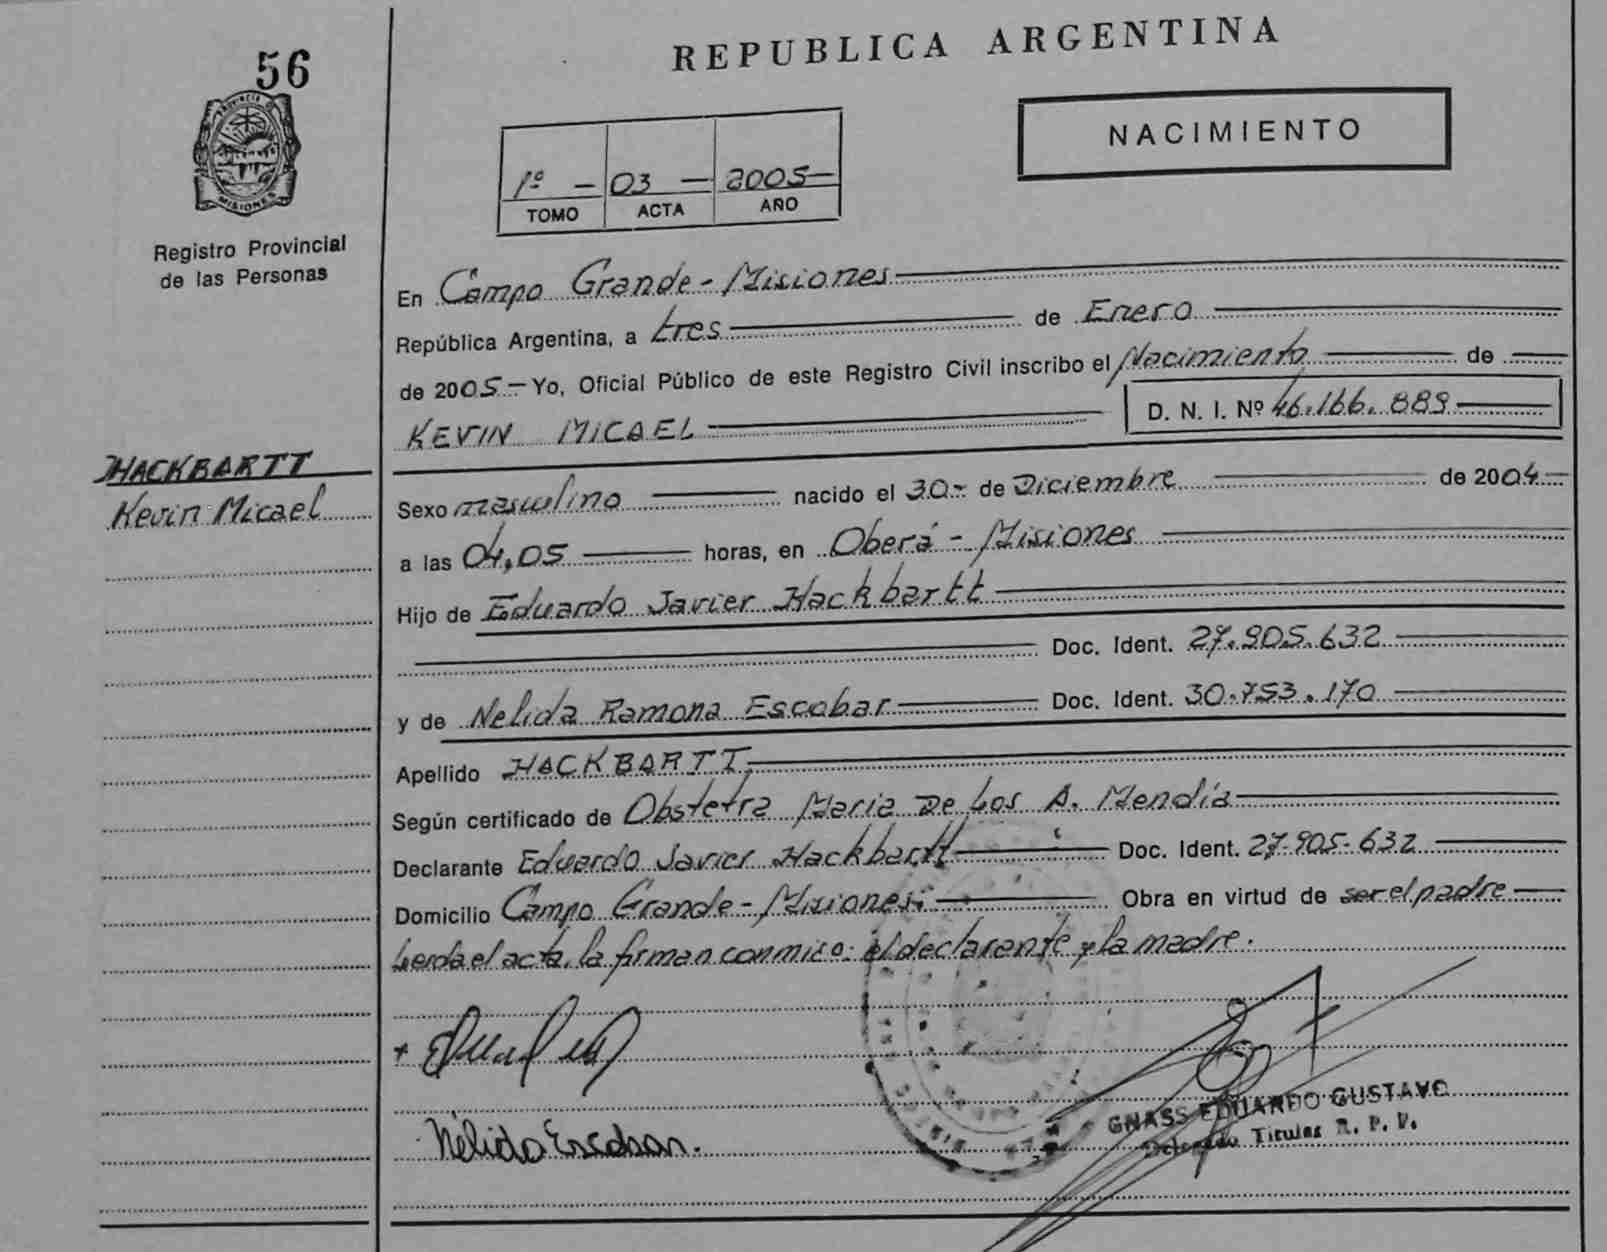 56
REPUBLICA ARGENTINA
PROVINCIA DE
MISIONES
Registro Provincial
de las Personas
1º - 03 - 2005 -
TOMO ACTA AÑO
NACIMIENTO
En Campo Grande - Misiones
República Argentina, a tres de Enero
de 2005 - Yo, Oficial Público de este Registro Civil inscribo el Nacimiento de
KEVIN MICAEL D. N. I. Nº 46.166.889
HACKBARTT
Kevin Micael
Sexo masculino nacido el 30 - de Diciembre de 2004
a las 04,05 horas, en Oberá - Misiones
Hijo de Eduardo Javier Hackbartt
Doc. Ident. 27.905.632
y de Nelida Ramona Escobar Doc. Ident. 30.753.170
Apellido HACKBARTT
Según certificado de Obstetra Maria De Los A. Mendía
Declarante Eduardo Javier Hackbartt Doc. Ident. 27.905.632
Domicilio Campo Grande - Misiones Obra en virtud de ser el padre
Leida el acta, la firman conmigo: el declarante y la madre.
Nélida Escobar.
GNASS EDUARDO GUSTAVO
Delegado Titular R. P. P.